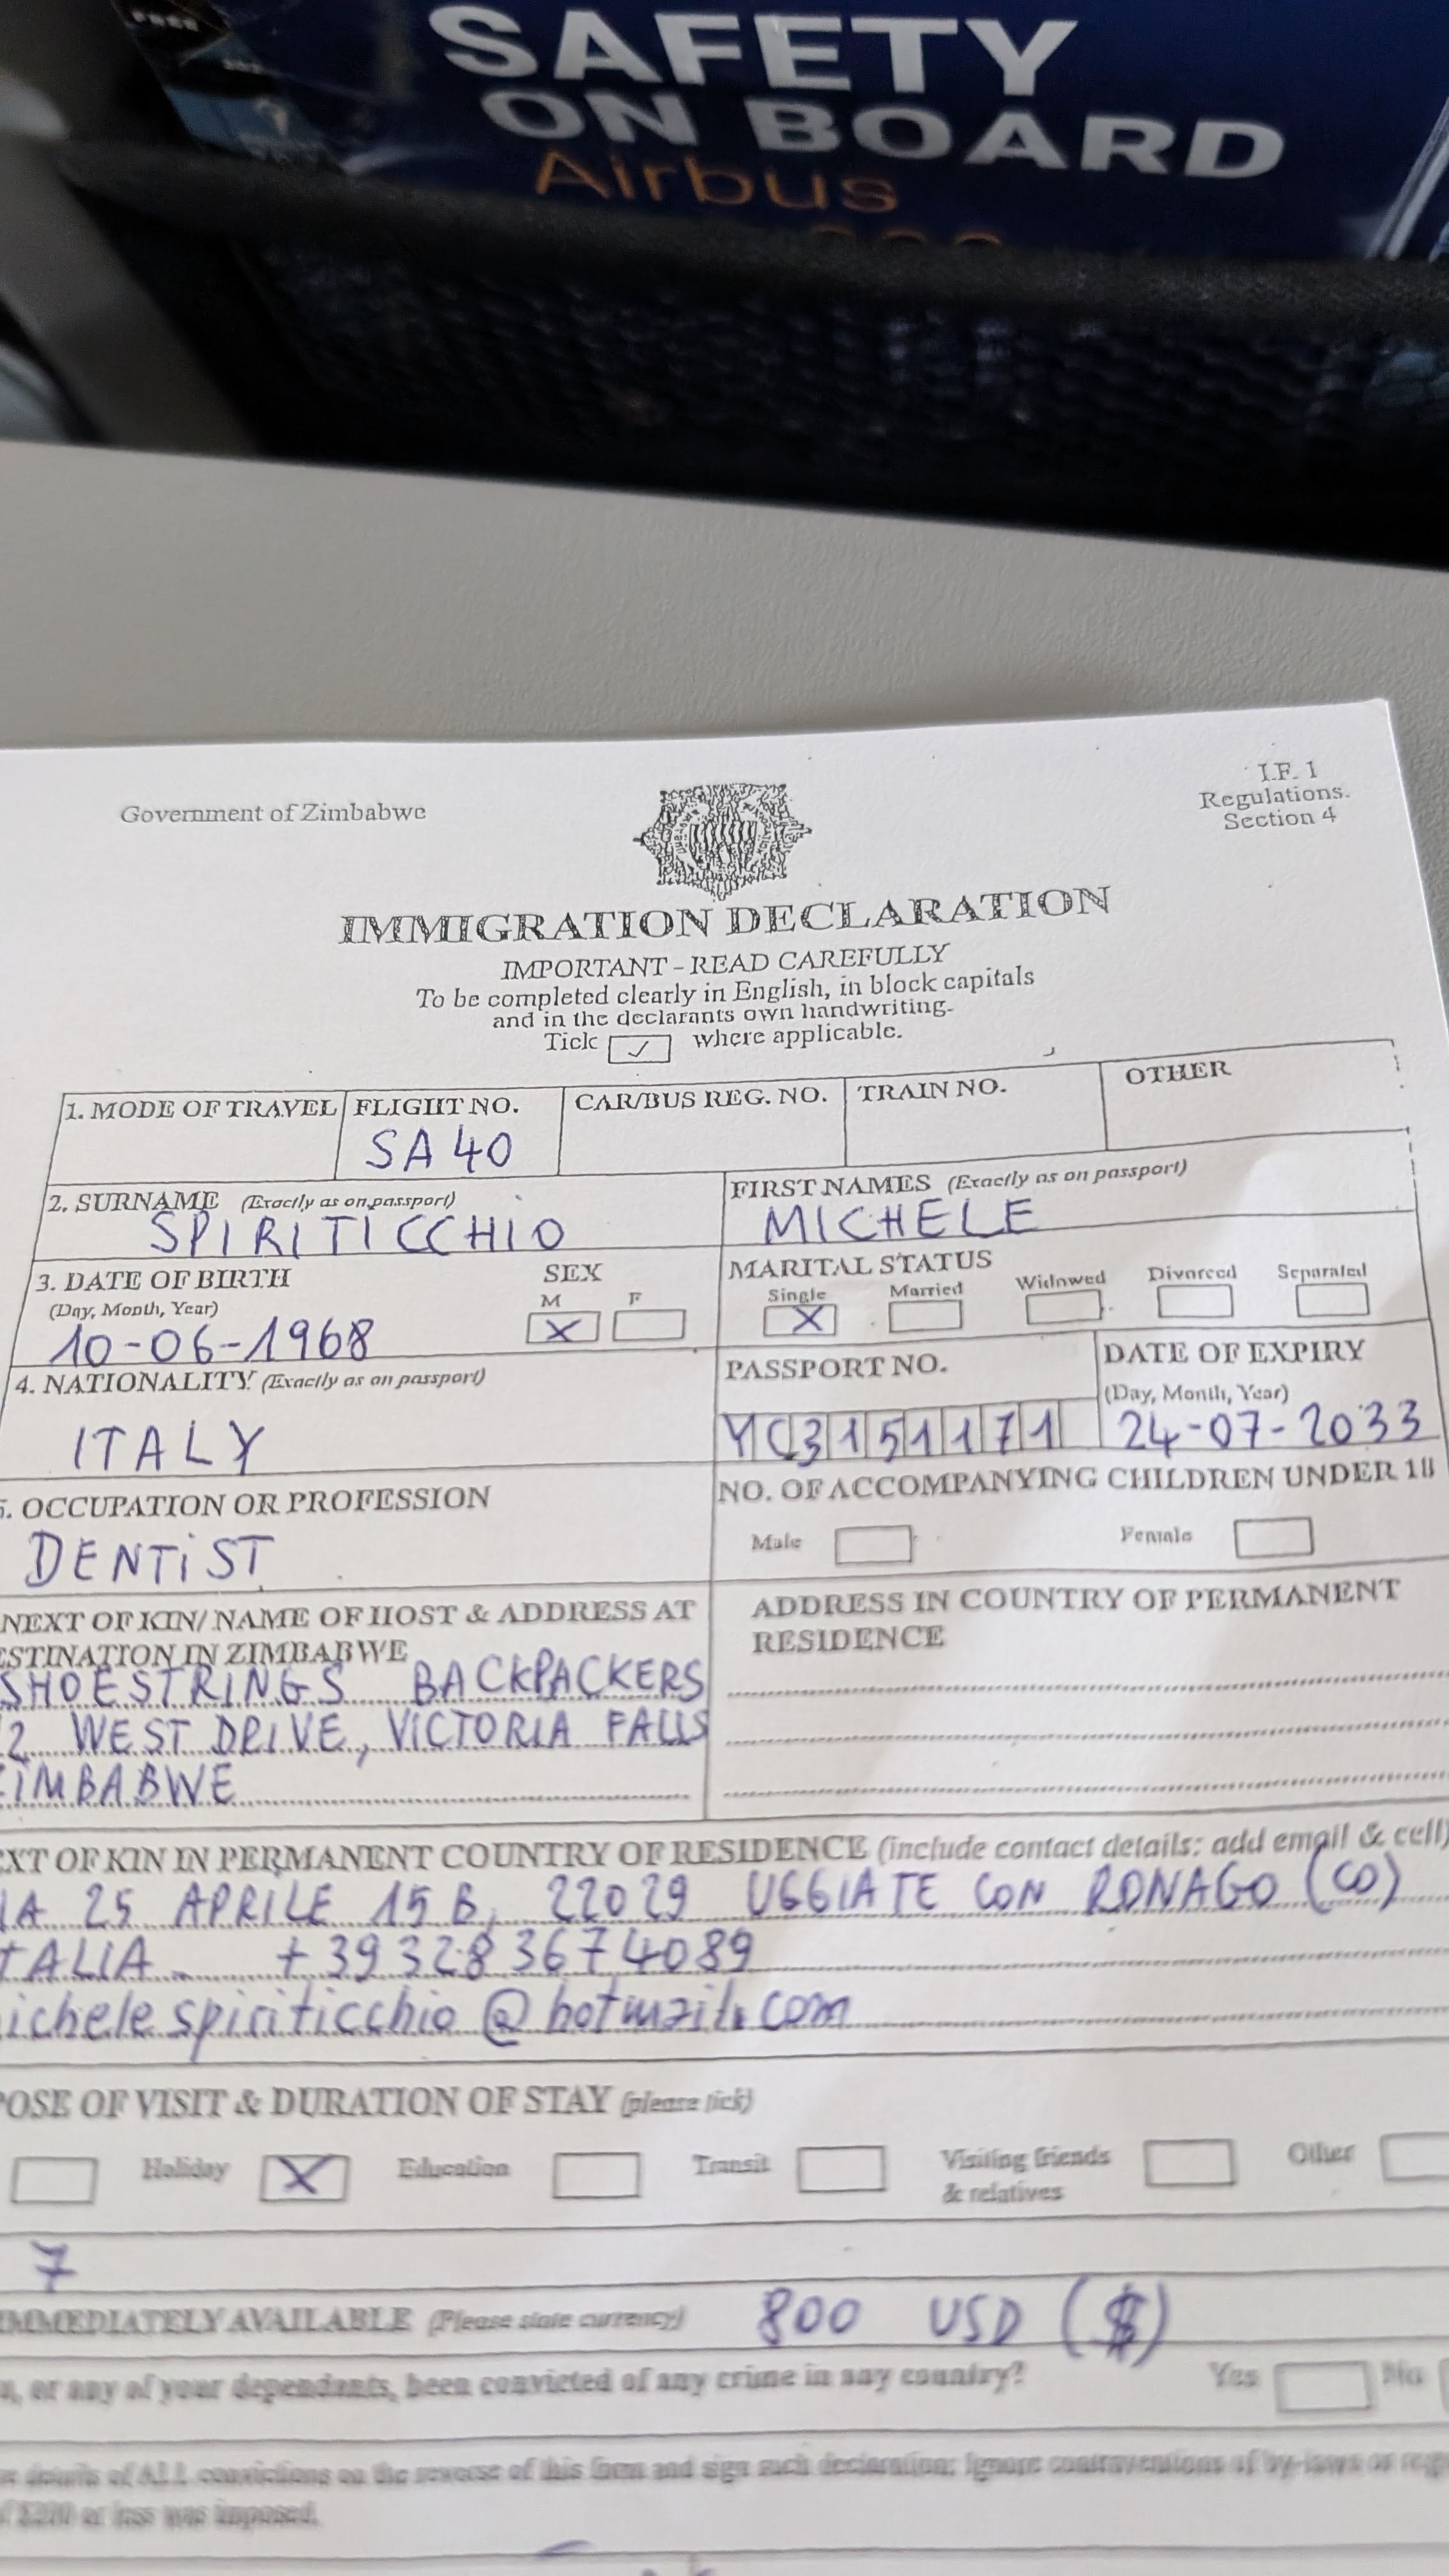 SAFETY
ON BOARD
Airbus
Government of Zimbabwe
I.F. 1
Regulations.
Section 4
IMMIGRATION DECLARATION
IMPORTANT - READ CAREFULLY
To be completed clearly in English, in block capitals
and in the declarants own handwriting.
Tick ✓ where applicable.
1. MODE OF TRAVEL FLIGHT NO. CAR/BUS REG. NO. TRAIN NO. OTHER
SA 40
2. SURNAME (Exactly as on passport) FIRST NAMES (Exactly as on passport)
SPIRITICCHIO MICHELE
3. DATE OF BIRTH SEX MARITAL STATUS
(Day, Month, Year) M F Single Married Widowed Divorced Separated
10-06-1968 X X
4. NATIONALITY (Exactly as on passport) PASSPORT NO. DATE OF EXPIRY
(Day, Month, Year)
ITALY YC3151171 24-07-2033
5. OCCUPATION OR PROFESSION NO. OF ACCOMPANYING CHILDREN UNDER 18
DENTIST Male Female
NEXT OF KIN/ NAME OF HOST & ADDRESS AT ADDRESS IN COUNTRY OF PERMANENT
ESTINATION IN ZIMBABWE RESIDENCE
SHOESTRINGS BACKPACKERS
2 WEST DRIVE, VICTORIA FALLS
ZIMBABWE
EXT OF KIN IN PERMANENT COUNTRY OF RESIDENCE (include contact details: add email & cell)
IA 25 APRILE 15 B, 22029 UGGIATE CON RONAGO (CO)
TALIA +393283674089
ichele.spiriticchio@hotmail.com
POSE OF VISIT & DURATION OF STAY (please tick)
Holiday X Education Transit Visiting friends Other
& relatives
7
IMMEDIATELY AVAILABLE (Please state currency) 800 USD ($)
, or any of your dependants, been convicted of any crime in any country? Yes No
details of ALL convictions on the reverse of this form and sign such declaration: Ignore contraventions of by-laws or
$200 or less was imposed.